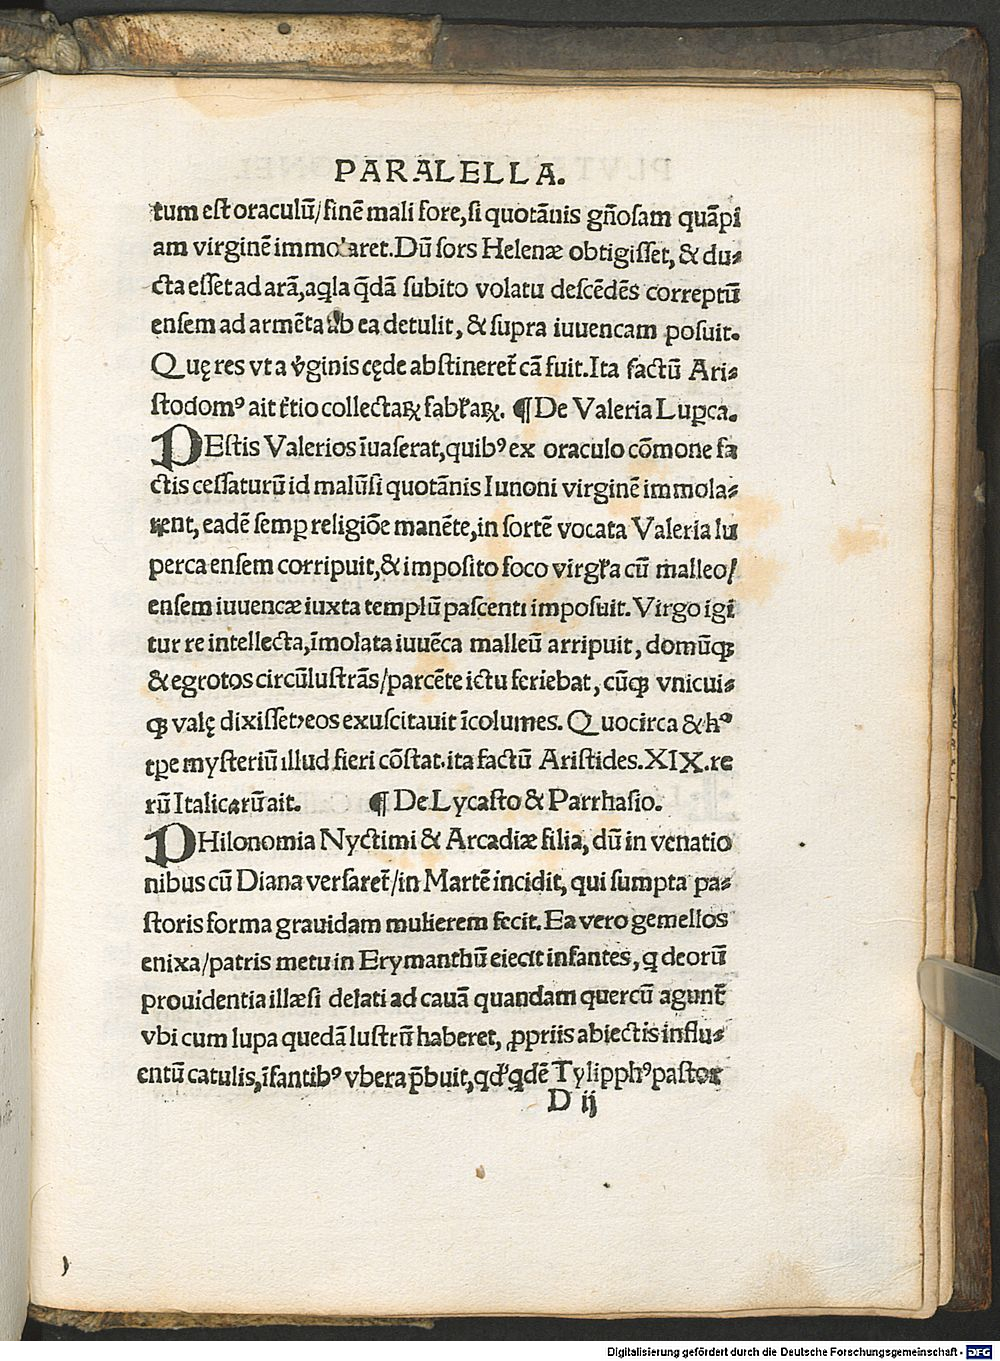 PARALELLA.
tum est oraculū/finē mali fore, si quotānis gn̄osam quāpi
am virginē immolaret. Dū sors Helenæ obtigisset, & du⸗
cta esset ad arā, aq̄la q̄dā subito volatu descēdēs correptū
ensem ad armēta ab ea detulit, & supra iuuencam posuit.
Quę res vt a v̓ginis cęde abstineret̃ cā fuit. Ita factū Ari⸗
stodomꝰ ait t̓tio collectaꝝ fabl̓aꝝ. ¶ De Valeria Luꝑca.
PEstis Valerios īuaserat, quibꝰ ex oraculo cōmone fa
ctis cessaturū id malū si quotānis Iunoni virginē immola⸗
rent, eadē semꝑ religiōe manēte, in sortē vocata Valeria lu
perca ensem corripuit, & imposito foco virgl̓a cū malleo/
ensem iuuencæ iuxta templū pascenti imposuit. Virgo igi
tur re intellecta, īmolata iuuēca malleū arripuit, domūqꝫ
& egrotos circūlustrās/parcēte ictu feriebat, cūqꝫ vnicui⸗
qꝫ valę dixisset, eos exuscitauit īcolumes. Quocirca & hꝰ
tꝑe mysteriū illud fieri cōstat. ita factū Aristides. XIX. re
rū Italicarū ait. ¶ De Lycasto & Parrhasio.
PHilonomia Nyctimi & Arcadiæ filia, dū in venatio
nibus cū Diana versaret̃/in Martē incidit, qui sumpta pa⸗
storis forma grauidam mulierem fecit. Ea vero gemellos
enixa/patris metu in Erymanthū eiecit infantes, q deorū
prouidentia illæsi delati ad cauā quandam quercū agunt̃
vbi cum lupa quedā lustrū haberet, ꝓpriis abiectis influ⸗
entū catulis, īfantibꝰ vbera p̄buit, qd̓ qdē Tylipphꝰ pastor
D ij
Digitalisierung gefördert durch die Deutsche Forschungsgemeinschaft - DFG